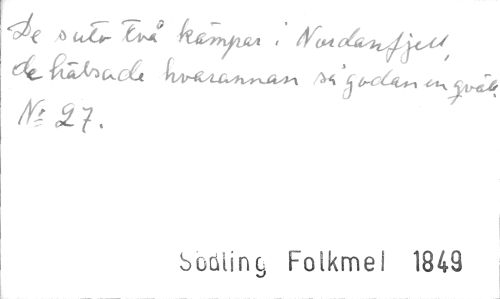 De suto två kämpar i Nordanfjell,
de hälsade hvarannan så godan en qväll.
No 27.
Södling Folkmel 1849